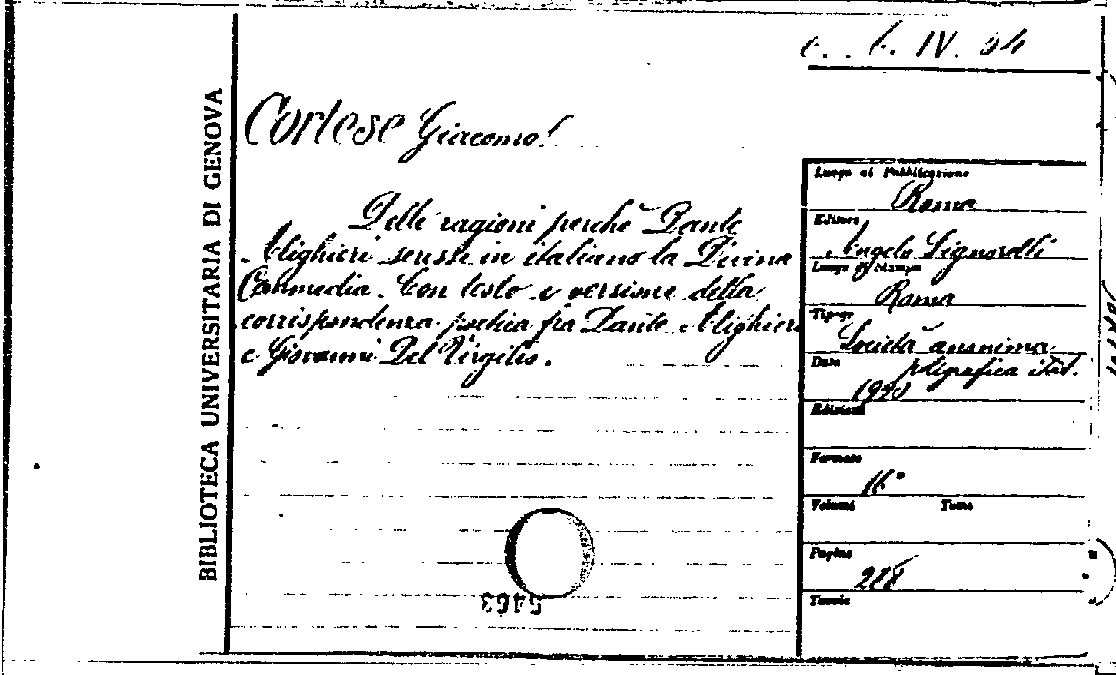 IV. 54
BIBLIOTECA UNIVERSITARIA DI GENOVA
Cortese Giacomo
Delle ragioni perchè Dante
Alighieri scrisse in italiano la Divina
Commedia. Con testo e versione della
corrispondenza poetica fra Dante Alighieri
e Giovanni Del Virgilio.
Luogo di Pubblicazione
Roma
Editore
Angelo Signorelli
Luogo di Stampa
Roma
Tipogr.
Società anonima
poligrafica ital.
Data
Edizione
Formato
16°
Volumi Tomo
Pagine
Tavole
5463